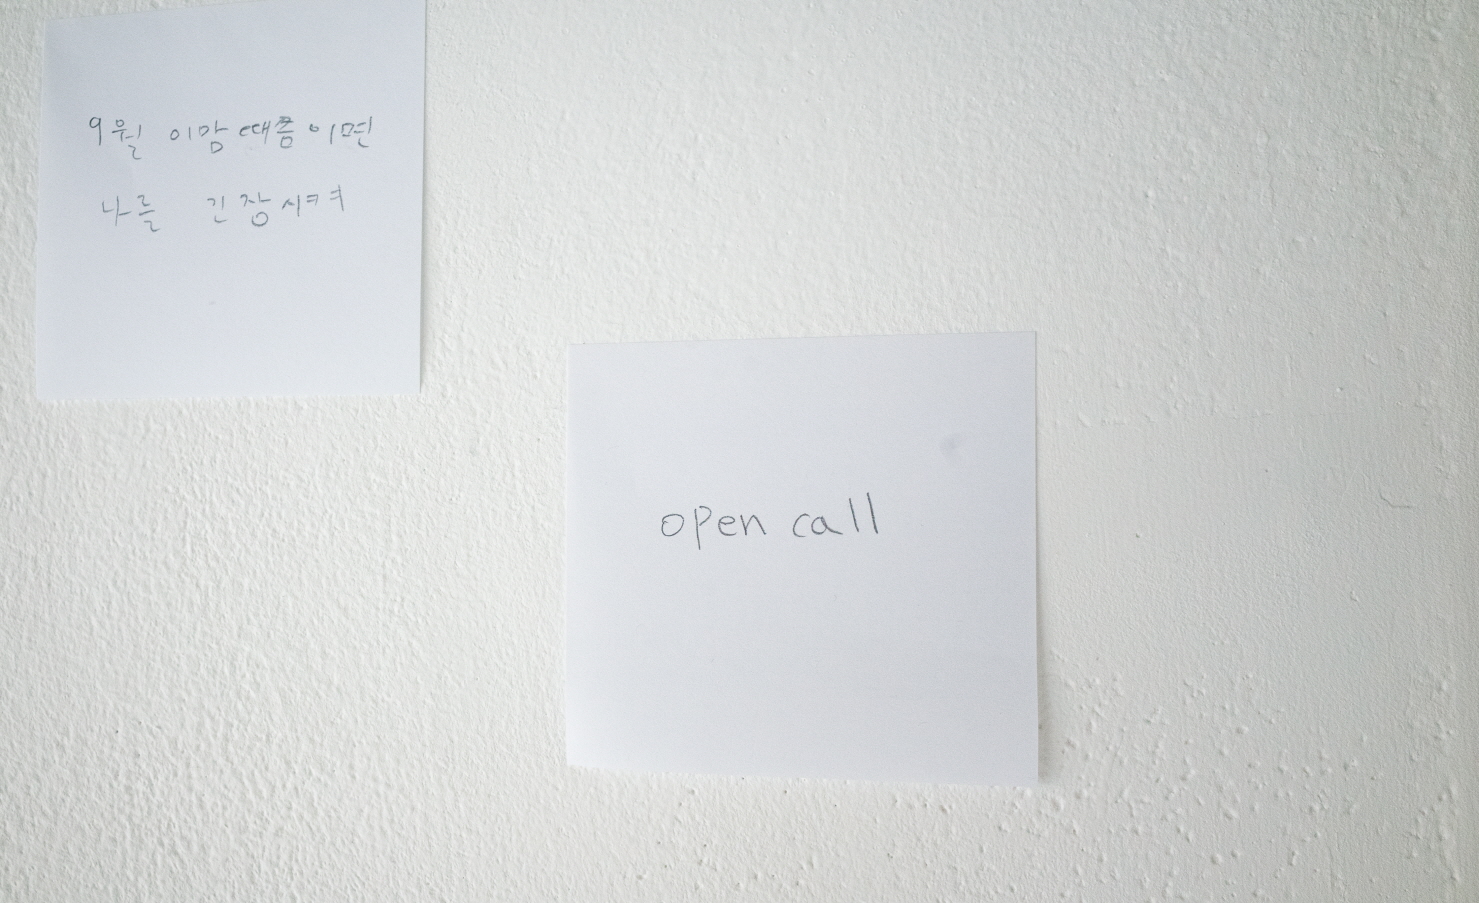 9월 이맘때쯤이면
나를 긴장시켜
open call